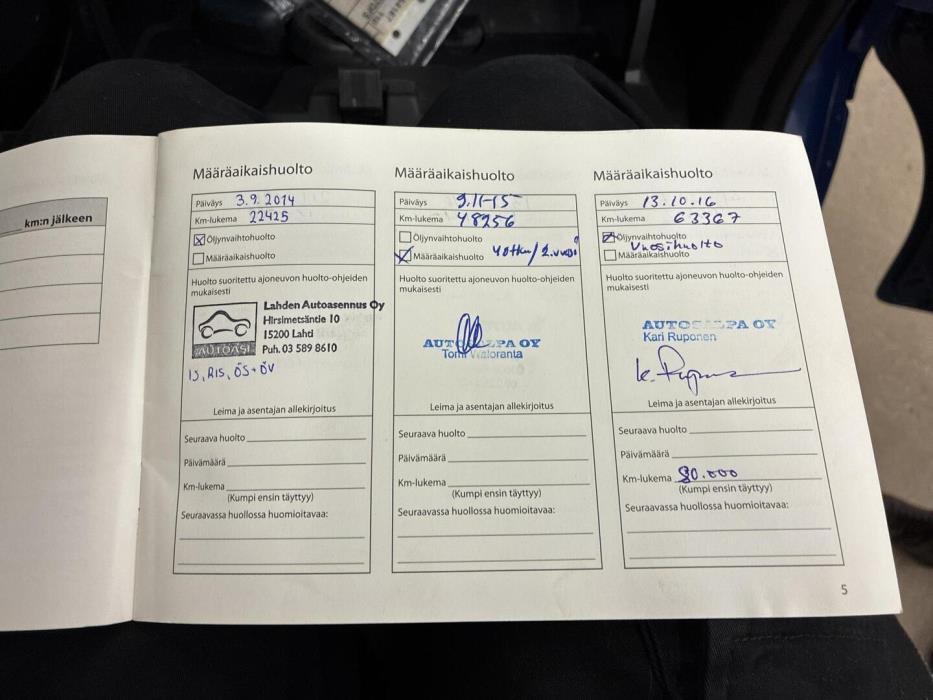 km:n jälkeen
Määräaikaishuolto
Päiväys 3.9.2014
Km-lukema 22425
Öljynvaihtohuolto
Määräaikaishuolto
Huolto suoritettu ajoneuvon huolto-ohjeiden
mukaisesti
Lahden Autoasennus Oy
Hirsimetsäntie 10
15200 Lahti
Puh. 03 589 8610
AUTOASI
IS, RIS, ÖS+ÖV
Leima ja asentajan allekirjoitus
Seuraava huolto
Päivämäärä
Km-lukema
(Kumpi ensin täyttyy)
Seuraavassa huollossa huomioitavaa:
Määräaikaishuolto
Päiväys 9.11-15
Km-lukema 48256
Öljynvaihtohuolto
Määräaikaishuolto 40tkm/2.vuosi
Huolto suoritettu ajoneuvon huolto-ohjeiden
mukaisesti
PA OY
Leima ja asentajan allekirjoitus
Seuraava huolto
Päivämäärä
Km-lukema
(Kumpi ensin täyttyy)
Seuraavassa huollossa huomioitavaa:
Määräaikaishuolto
Päiväys 13.10.16
Km-lukema 63367
Öljynvaihtohuolto
Vuosihuolto
Määräaikaishuolto
Huolto suoritettu ajoneuvon huolto-ohjeiden
mukaisesti
PA OY
Kari Ruponen
Leima ja asentajan allekirjoitus
Seuraava huolto
Päivämäärä
Km-lukema 80.000
(Kumpi ensin täyttyy)
Seuraavassa huollossa huomioitavaa:
5